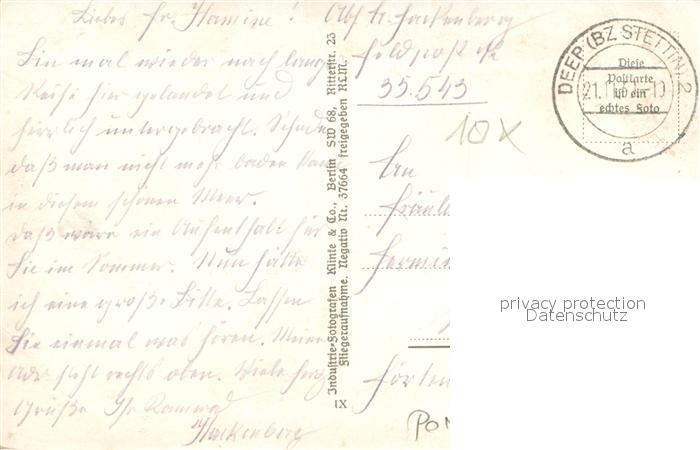 Liebes Frl. Hamine!
Bin mal wieder nach langer
Reise hier gelandet und
herrlich untergebracht. Schade
daß man nicht mehr baden kann
in diesem schönen Meer.
Das wäre ein Aufenthalt für
Sie im Sommer. Nun hätte
ich eine große Bitte. Lassen
Sie einmal was hören. Meine
Adr. steht rechts oben. Viele herzl.
Grüße Ihr Kamerad
Hackenberg
Industrie-Fotografen Klinke & Co., Berlin SW 68, Ritterstr. 23
Fliegeraufnahme. Negativ Nr. 37664 freigegeben RLM.
IX
Abs. Hackenberg
Feldpost Nr
35.543
10x
DEEP (BZ STETTIN) 2
a
Diese
Postkarte
ist ein
echtes Foto
An
Fräul
privacy protection
Datenschutz